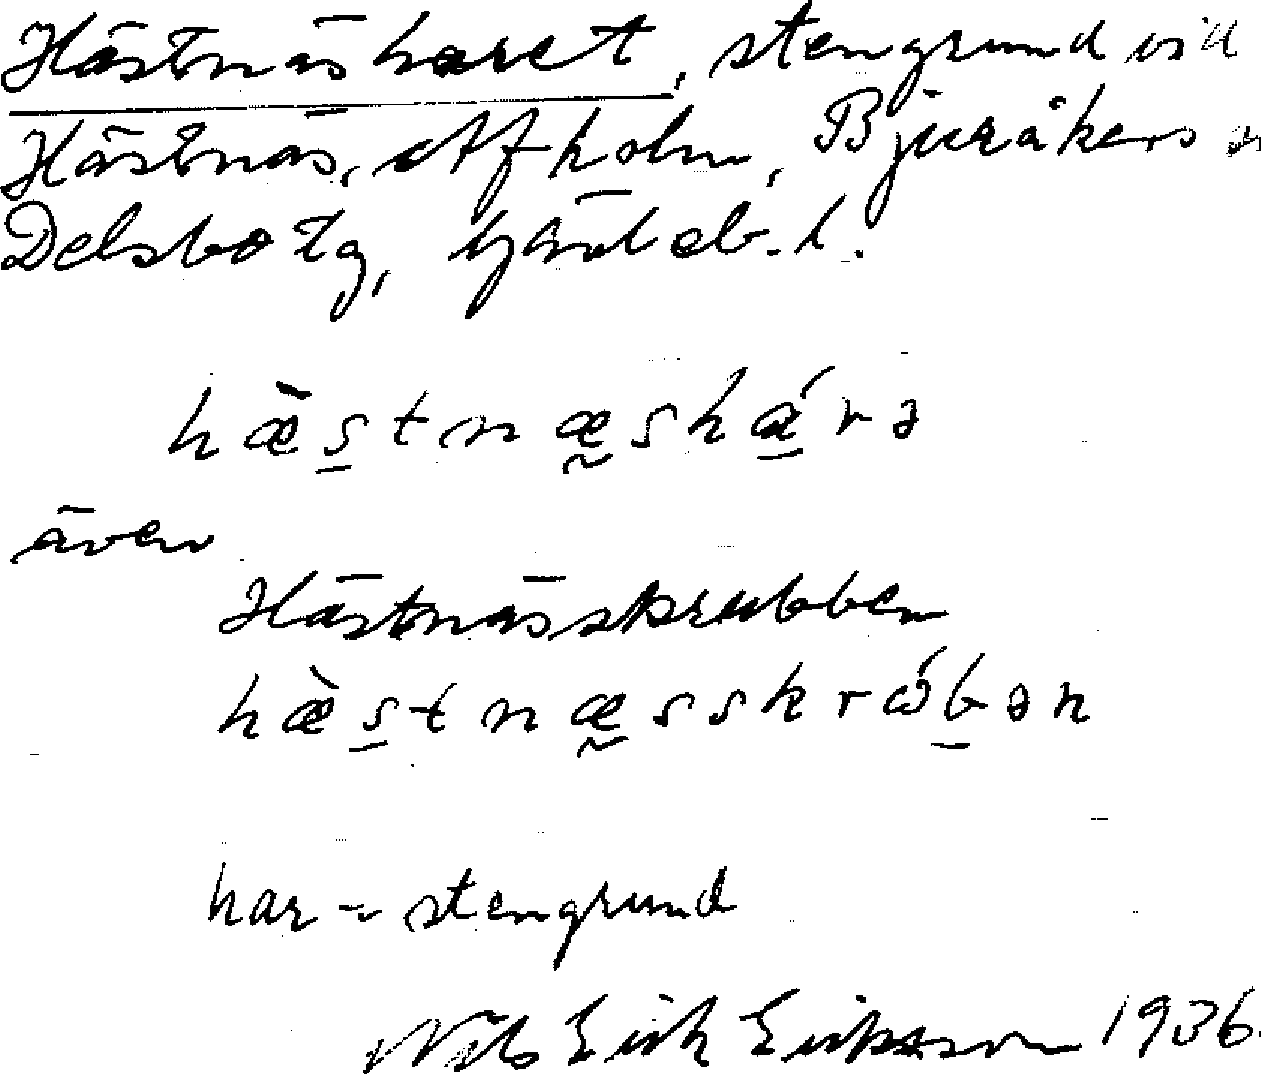 Hästnäsharet, stengrund vid
Hästnäs, Afholm, Bjuråkers o
Delsbo tg, Gävleb. l.
hæ̀s̠tnæ̰shá̠rə
även
Hästnässkrubben
hæ̀s̠tnæ̰sskrɷ́b̠ən
har = stengrund
Nils Erik Eriksson 1936.